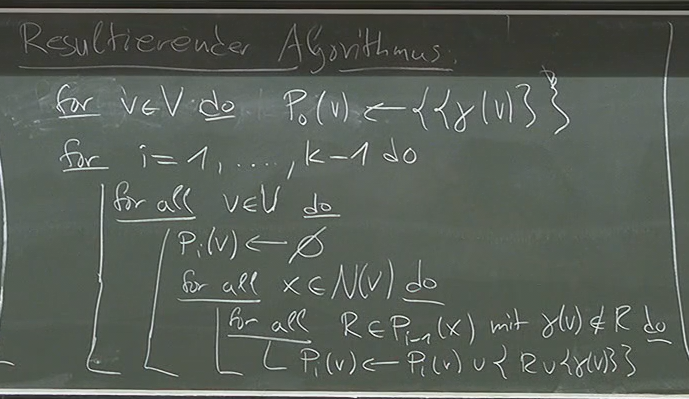 Resultierender Algorithmus:
for v∈V do P₀(v) ← {{γ(v)}}
for i=1, ...., k-1 do
for all v∈V do
Pᵢ(v) ← ∅
for all x∈N(v) do
for all R∈Pᵢ₋₁(x) mit γ(v) ∉ R do
Pᵢ(v) ← Pᵢ(v) ∪ {R∪{γ(v)}}